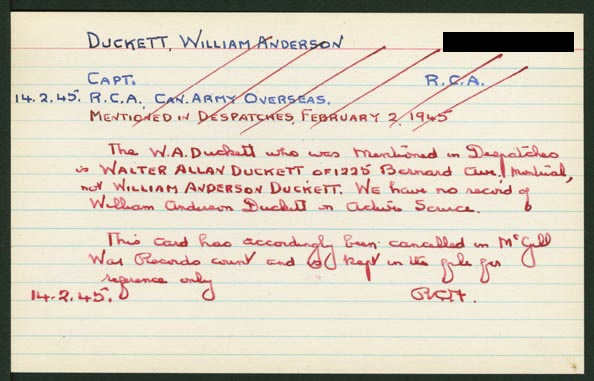 DUCKETT, WILLIAM ANDERSON
CAPT. R.C.A.
14.2.45. R.C.A. CAN. ARMY OVERSEAS.
MENTIONED IN DESPATCHES, FEBRUARY 2, 1945
The W.A. Duckett who was Mentioned in Despatches
is WALTER ALLAN DUCKETT OF 1225 Bernard Ave., Montreal,
not WILLIAM ANDERSON DUCKETT. WE have no record of
William Anderson Duckett on Active Service.
This card has accordingly been cancelled in McGill
War Records count and is kept in the file for
reference only
14.2.45.